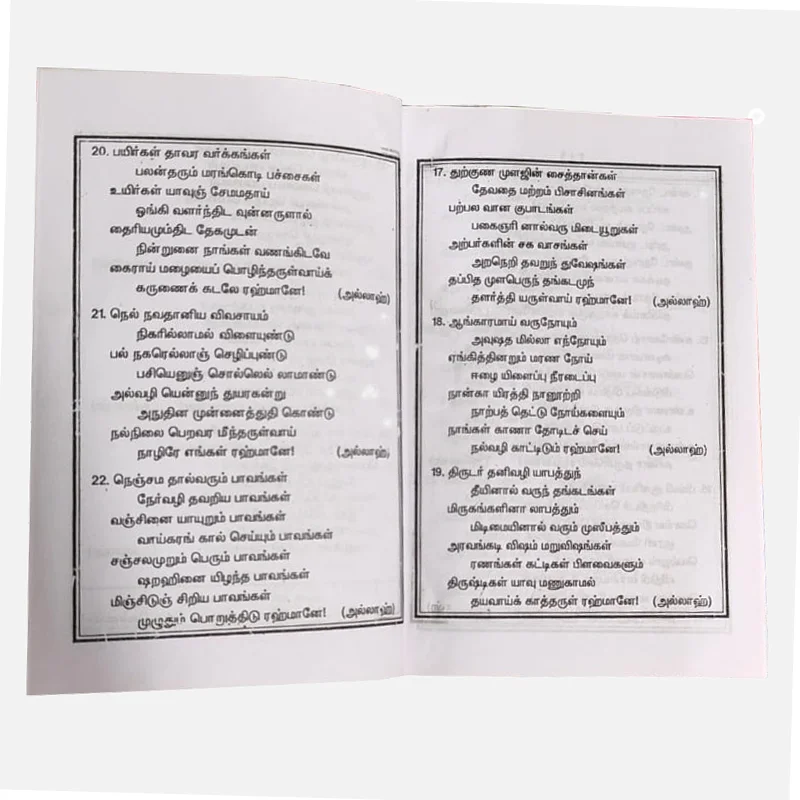 20. பயிர்கள் தாவர வர்க்கங்கள்
பலன்தரும் மரங்கொடி பச்சைகள்
உயிர்கள் யாவுஞ் சேமமதாய்
ஓங்கி வளர்ந்திட வுன்னருளால்
தைரியமும்திட தேகமுடன்
நின்றுனை நாங்கள் வணங்கிடவே
கைராய் மழையைப் பொழிந்தருள்வாய்க்
கருணைக் கடலே ரஹ்மானே! (அல்லாஹ்)
21. நெல் நவதானிய விவசாயம்
நிகரில்லாமல் விளையுண்டு
பல் நகரெல்லாஞ் செழிப்புண்டு
பசியெனுஞ் சொல்லெல் லாமாண்டு
அல்வழி யென்னுந் துயரகன்று
அநுதின முன்னைத்துதி கொண்டு
நல்நிலை பெறவர மீந்தருள்வாய்
நாழிரே எங்கள் ரஹ்மானே! (அல்லாஹ்)
22. நெஞ்சம தால்வரும் பாவங்கள்
நேர்வழி தவறிய பாவங்கள்
வஞ்சினை யாயுறும் பாவங்கள்
வாய்கரங் கால் செய்யும் பாவங்கள்
சஞ்சலமுறும் பெரும் பாவங்கள்
ஷறஹினை யிழந்த பாவங்கள்
மிஞ்சிடுஞ் சிறிய பாவங்கள்
முழுதும் பொறுத்திடு ரஹ்மானே! (அல்லாஹ்)
17. துற்குண முளஜின் சைத்தான்கள்
தேவதை மற்றம் பிசாசினங்கள்
பற்பல வான குபாடங்கள்
பகைஞரி னால்வரு மிடையூறுகள்
அற்பர்களின் சக வாசங்கள்
அறநெறி தவறுந் துவேஷங்கள்
தப்பித முளபெருந் தங்கடமுந்
தளர்த்தி யருள்வாய் ரஹ்மானே! (அல்லாஹ்)
18. ஆங்காரமாய் வருநோயும்
அவுஷத மில்லா எந்நோயும்
ஏங்கித்தினறும் மரண நோய்
ஈழை யிளைப்பு நீரடைப்பு
நான்கா யிரத்தி நானூற்றி
நாற்பத் தெட்டு நோய்களையும்
நாங்கள் காணா தோடிடச் செய்
நல்வழி காட்டிடும் ரஹ்மானே! (அல்லாஹ்)
19. திருடர் தனிவழி யாபத்துந்
தீயினால் வருந் தங்கடங்கள்
மிருகங்களினா லாபத்தும்
மிடிமையினால் வரும் முஸீபத்தும்
அரவங்கடி விஷம் மறுவிஷங்கள்
ரணங்கள் கட்டிகள் பிளவைகளும்
திருஷ்டிகள் யாவு மணுகாமல்
தயவாய்க் காத்தருள் ரஹ்மானே! (அல்லாஹ்)